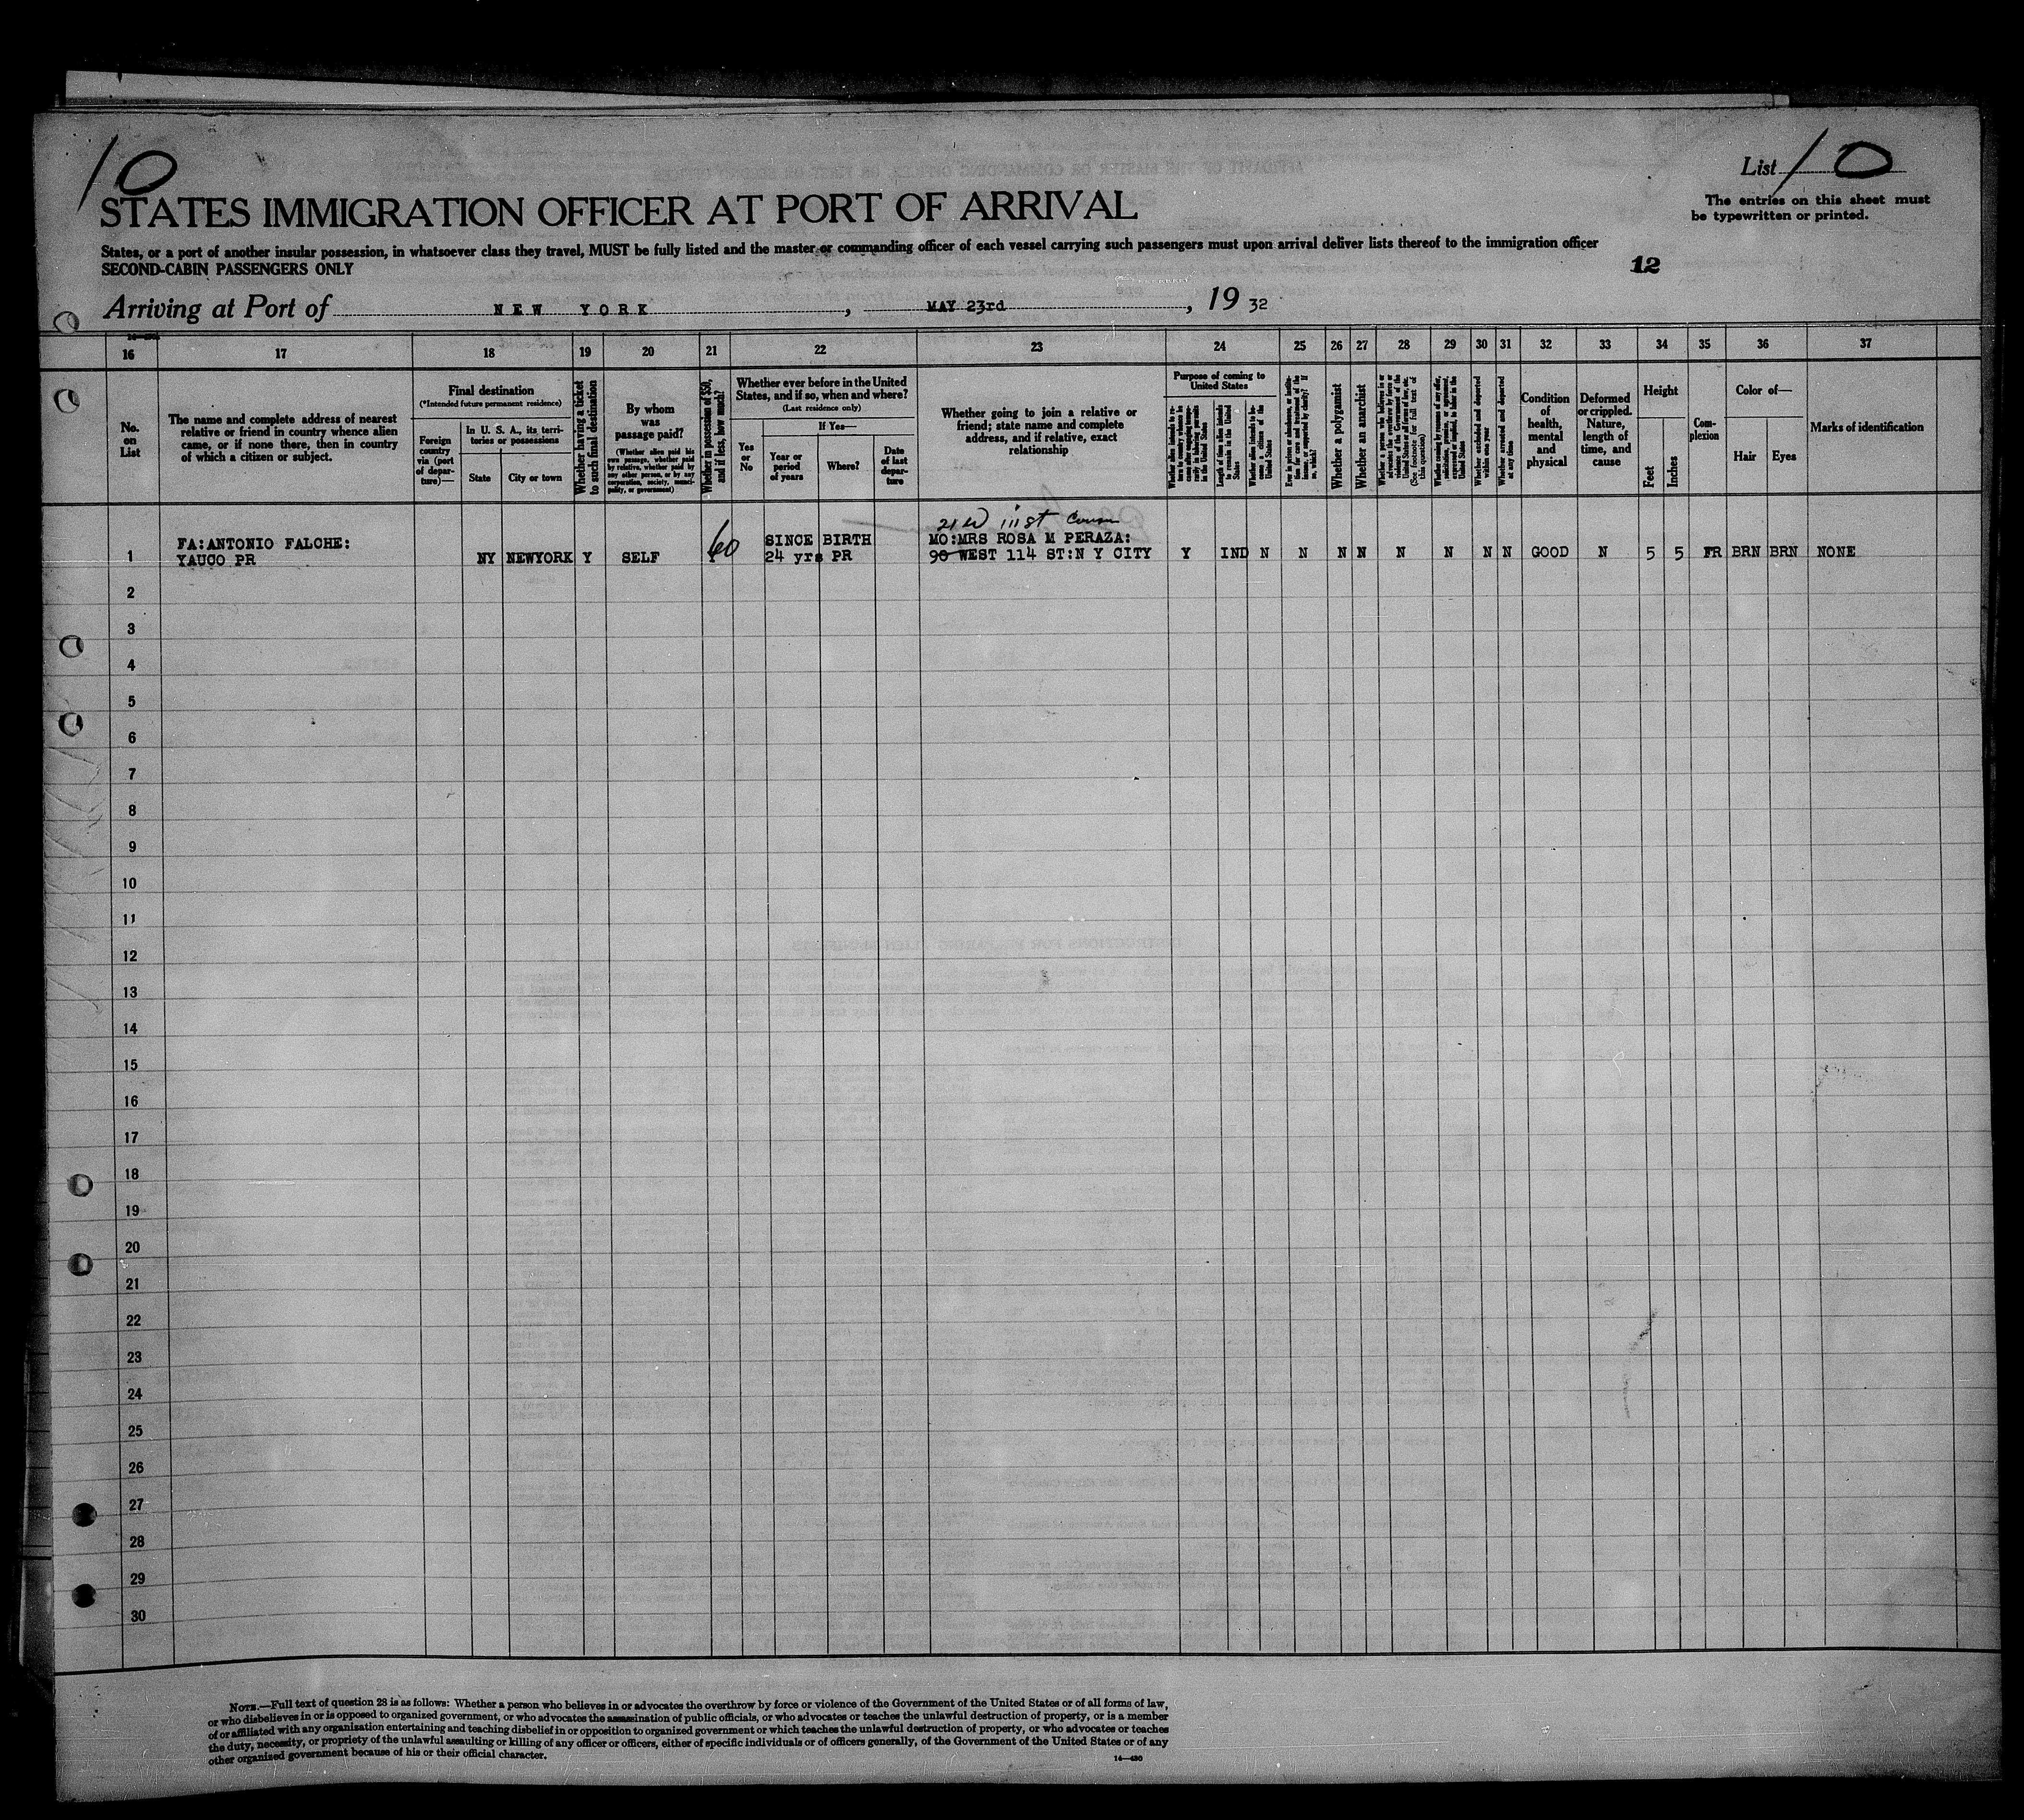 10
List 10
STATES IMMIGRATION OFFICER AT PORT OF ARRIVAL
The entries on this sheet must
be typewritten or printed.
States, or a port of another insular possession, in whatsoever class they travel, MUST be fully listed and the master or commanding officer of each vessel carrying such passengers must upon arrival deliver lists thereof to the immigration officer
SECOND-CABIN PASSENGERS ONLY
12
Arriving at Port of NEW YORK, MAY 23rd, 19 32
16 17 18 19 20 21 22 23 24 25 26 27 28 29 30 31 32 33 34 35 36 37
No.
on
List
The name and complete address of nearest
relative or friend in country whence alien
came, or if none there, then in country
of which a citizen or subject.
Final destination
(*Intended future permanent residence)
Foreign
country
via (port
of depar-
ture)—
In U. S. A., its terri-
tories or possessions
State
City or town
Whether having a ticket
to such final destination
By whom
was
passage paid?
(Whether alien paid his
own passage, whether paid
by relative, whether paid by
any other person, or by any
corporation, society, munici-
pality, or government)
Whether in possession of $50,
and if less, how much?
Whether ever before in the United
States, and if so, when and where?
(Last residence only)
Yes
or
No
If Yes—
Year or
period
of years
Where?
Date
of last
depar-
ture
Whether going to join a relative or
friend; state name and complete
address, and if relative, exact
relationship
Purpose of coming to
United States
Length of time alien intends
to remain in the United
States
Whether alien intends to be-
come a citizen of the
United States
Whether a polygamist
Whether an anarchist
(See footnote for full text of
this question)
Whether arrested and deported
at any time
Condition
of
health,
mental
and
physical
Deformed
or crippled.
Nature,
length of
time, and
cause
Height
Feet
Inches
Com-
plexion
Color of—
Hair
Eyes
Marks of identification
21 W 111 St
FA:ANTONIO FALCHE: SINCE BIRTH MO:MRS ROSA M PERAZA:
1 YAUCO PR NY NEWYORK Y SELF 60 24 yrs PR 90 WEST 114 ST:N Y CITY Y IND N N N N N N N N GOOD N 5 5 FR BRN BRN NONE
2
3
4
5
6
7
8
9
10
11
12
13
14
15
16
17
18
19
20
21
22
23
24
25
26
27
28
29
30
NOTE.—Full text of question 28 is as follows: Whether a person who believes in or advocates the overthrow by force or violence of the Government of the United States or of all forms of law,
or who disbelieves in or is opposed to organized government, or who advocates the assassination of public officials, or who advocates or teaches the unlawful destruction of property, or is a member
of or affiliated with any organization entertaining and teaching disbelief in or opposition to organized government or which teaches the unlawful destruction of property, or who advocates or teaches
the duty, necessity, or propriety of the unlawful assaulting or killing of any officer or officers, either of specific individuals or of officers generally, of the Government of the United States or of any
other organized government because of his or their official character.
14—430